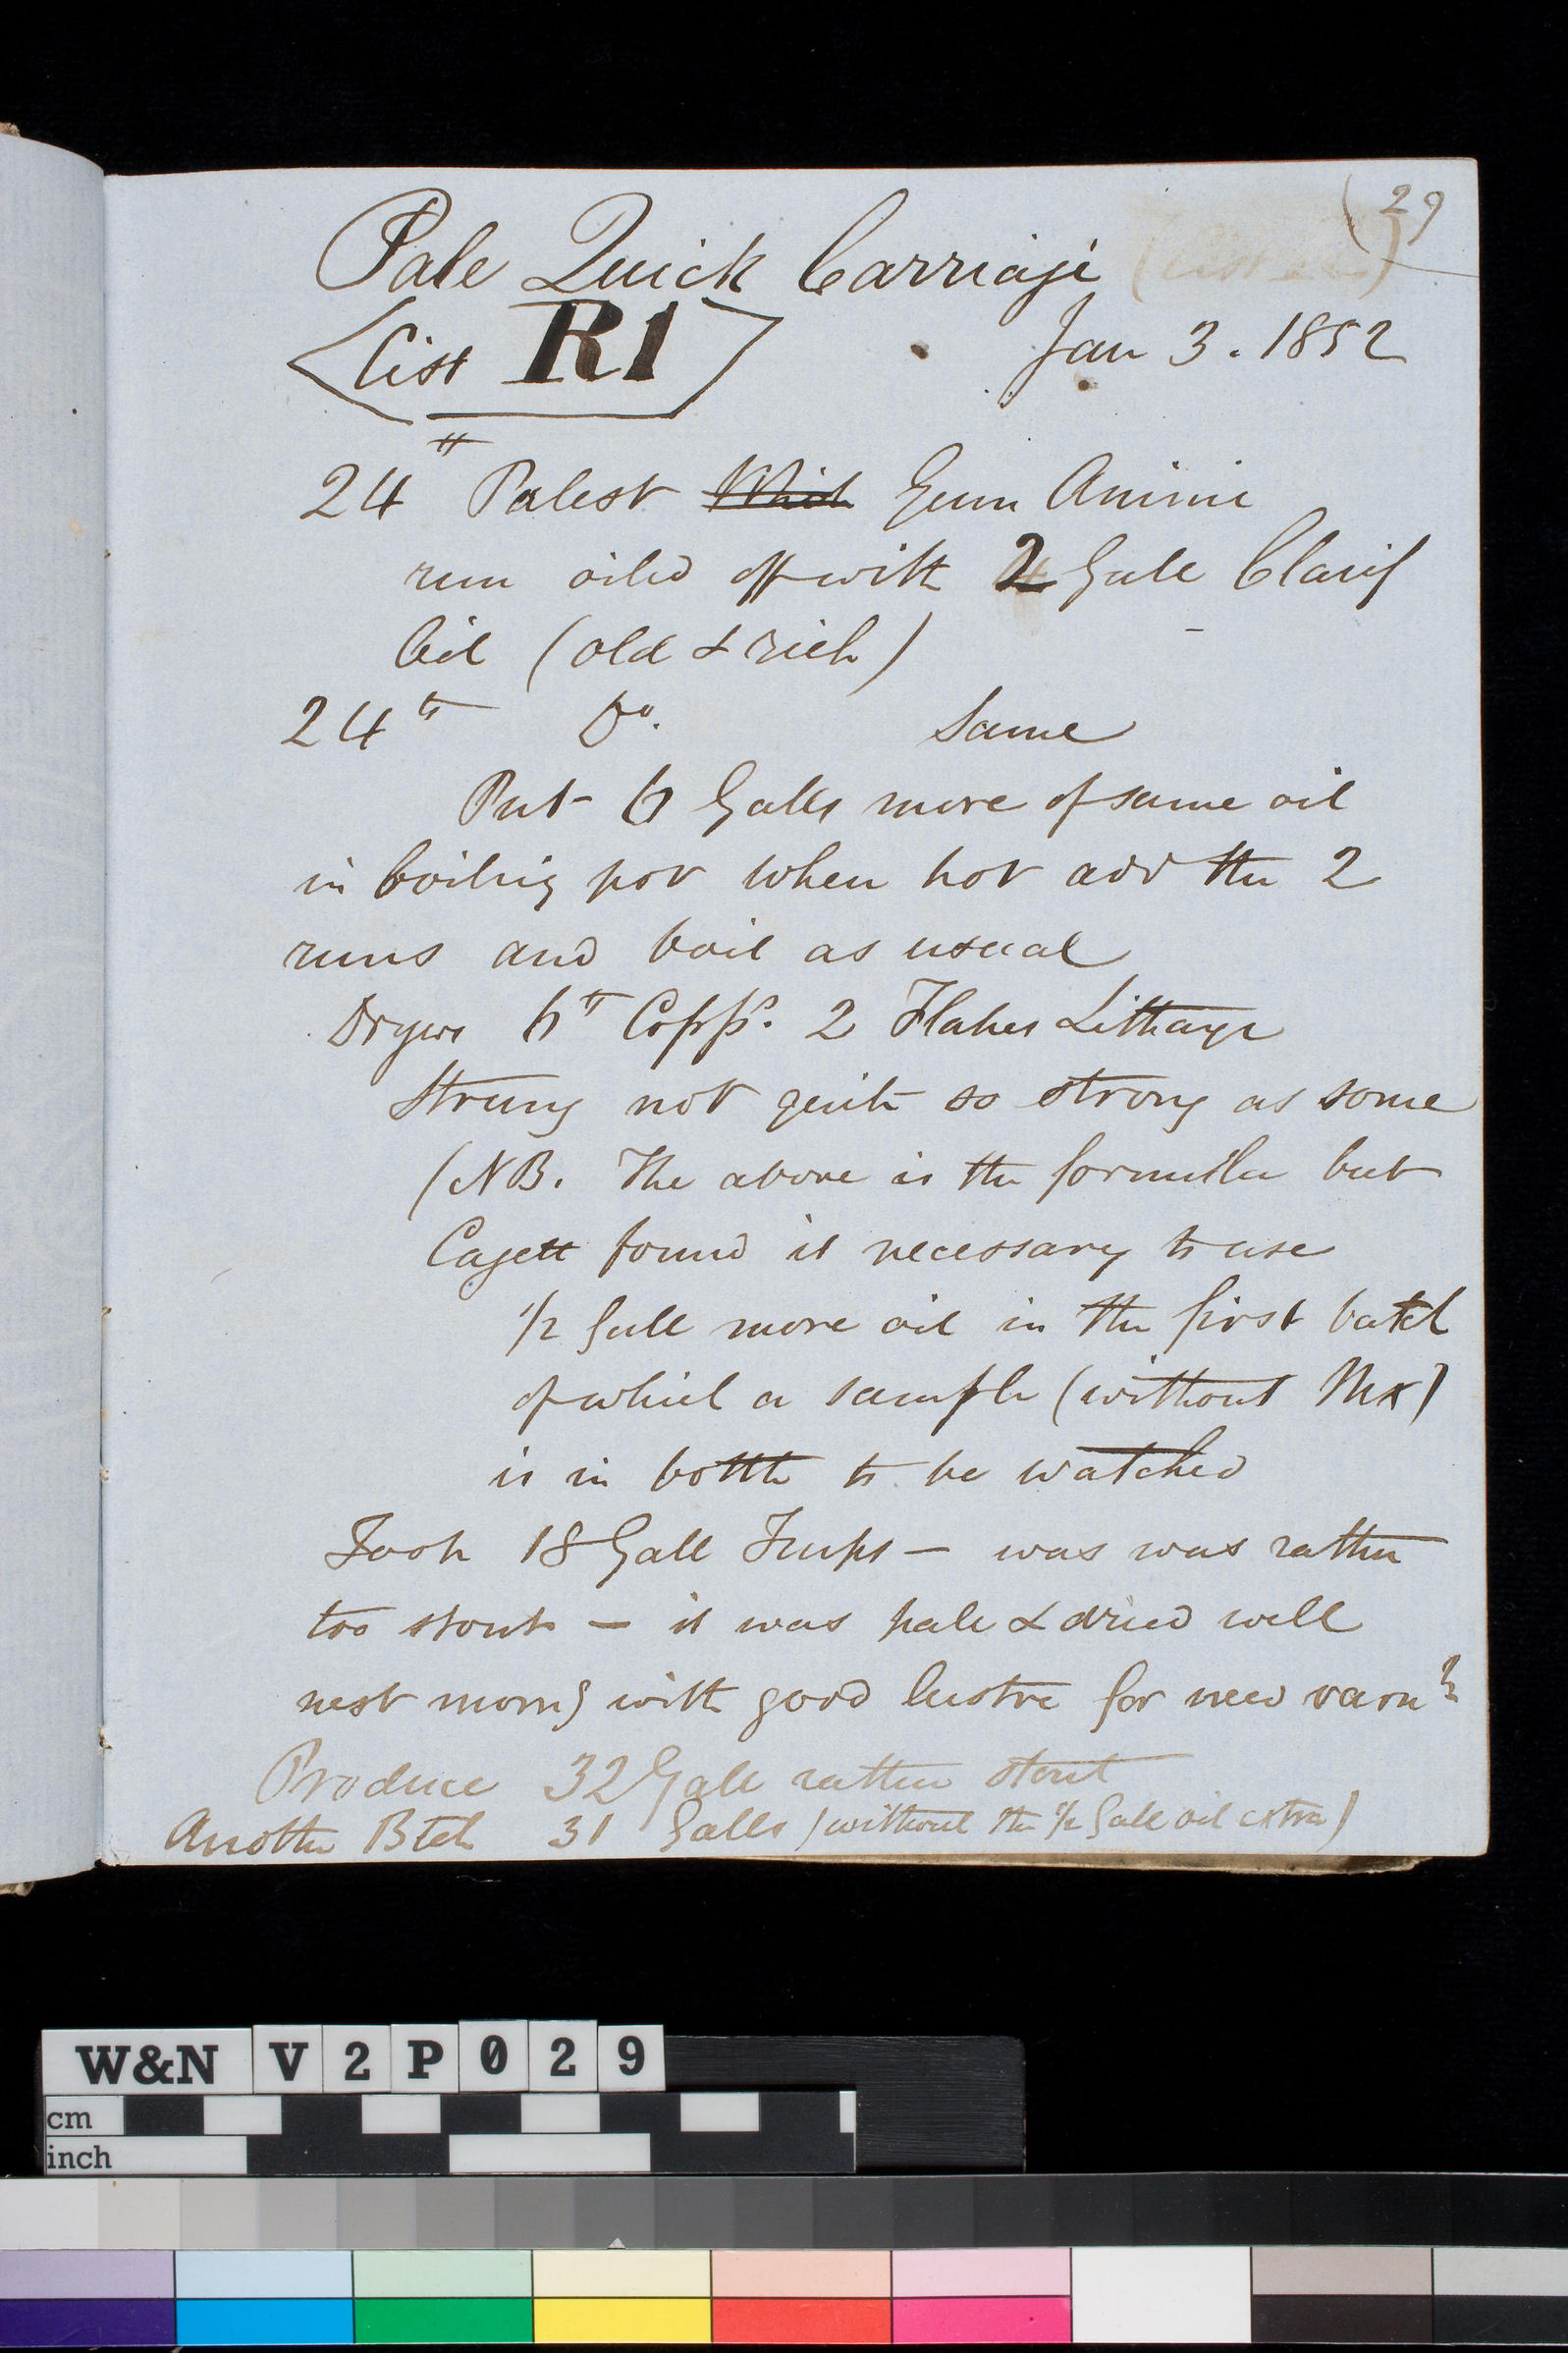 (29
Pale Quick Carriage
List R1
Jan 3. 1852
24 lb Palest Gum Animi
run oiled off with 2 Galls Clarif
Oil (old & rich)
24 lb Do. Same
Put 6 Galls more of same oil
in boiling pot when hot add the 2
runs and boil as usual
Dryers 6 lb Copps. 2 Flakes Litharge
String not quite so strong as some
(NB. The above is the formula but
found it necessary to use
1/2 Gall more oil in the first batch
of which a sample (without Mx)
is in bottle to be watched
Took 18 Gall Turps – was was rather
too stout – it was pale & dried well
next morng with good lustre for new varnh
Produce 32 Galls rather stout
Another Btch 31 Galls (without the 1/2 Gall oil extra)
W&N V2P029
cm
inch